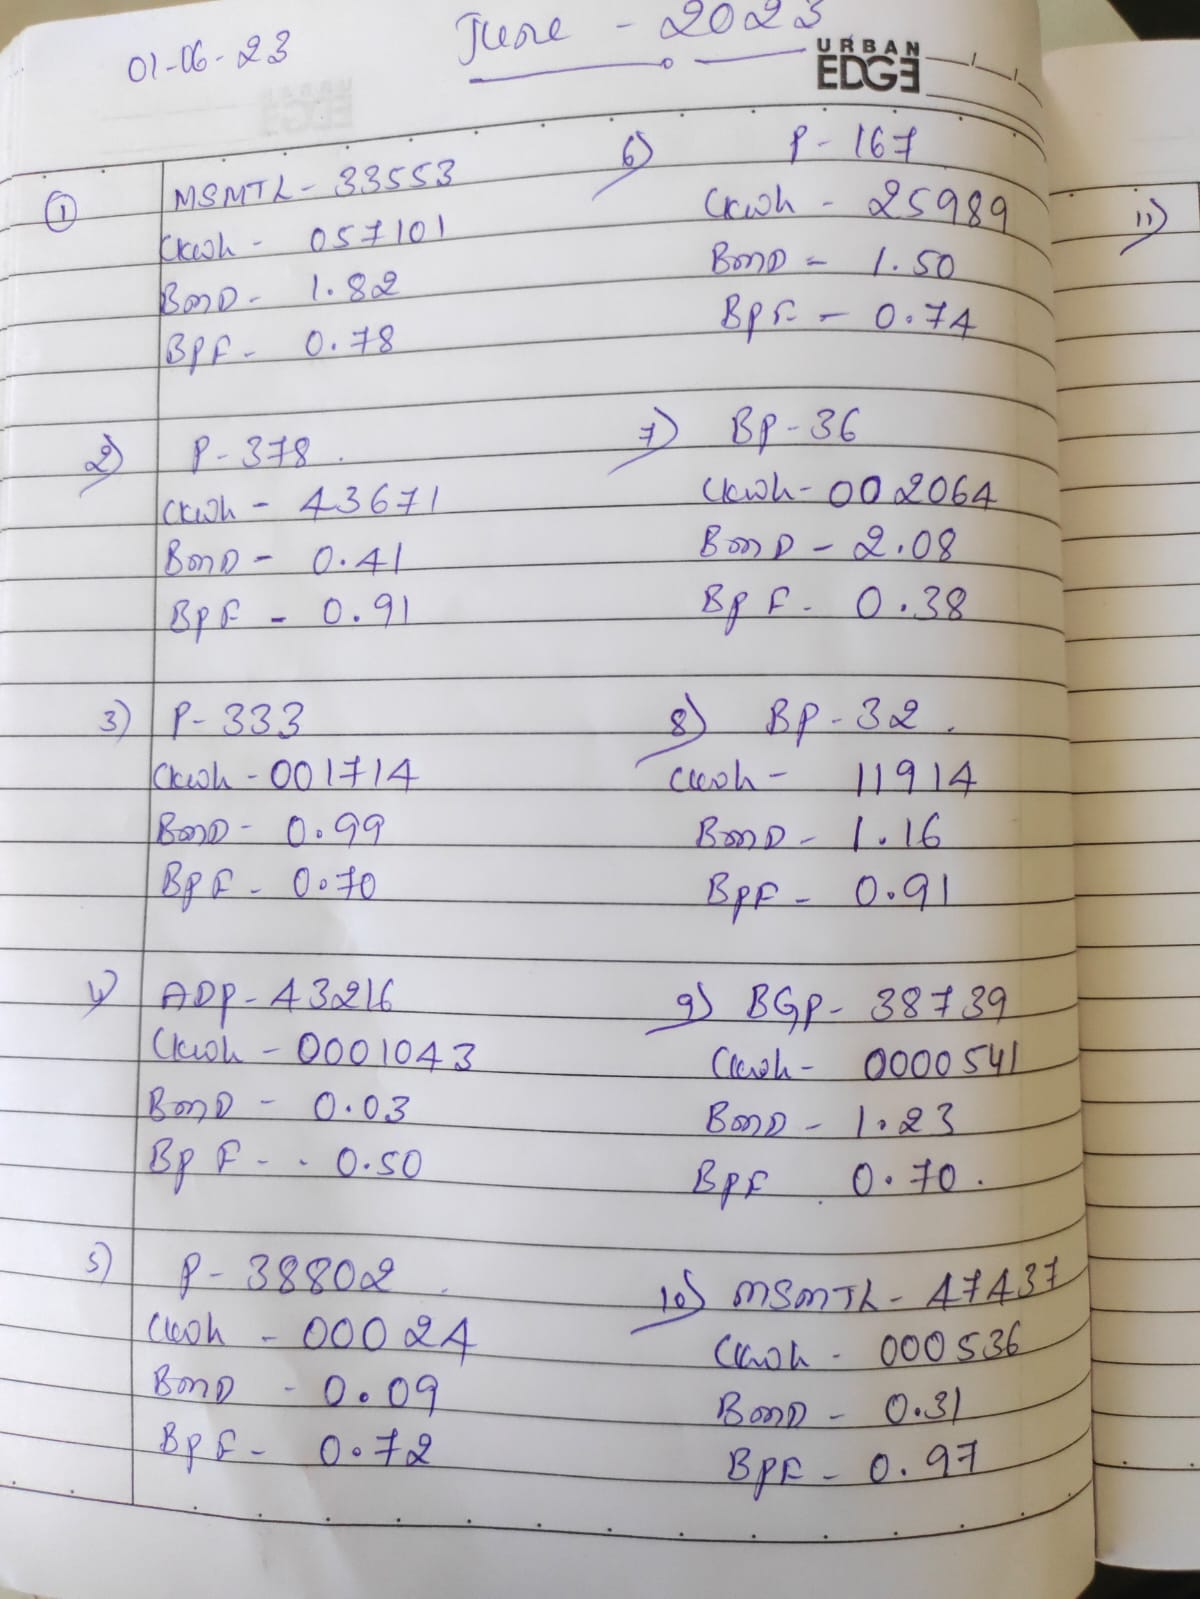 01-06-23
June - 2023
URBAN
EDGE
① MSMTL - 33553
Ckwh - 057101
BMD - 1.82
BPF - 0.78
2) P-378.
Ckwh - 43671
BMD - 0.41
BPF - 0.91
3) P-333
Ckwh - 001714
BMD - 0.99
BPF - 0.70
4) ADP - 43216
Ckwh - 0001043
BMD - 0.03
BPF - 0.50
5) P-38802
Ckwh - 00024
BMD - 0.09
BPF - 0.72
6) P-167
Ckwh - 25989
BMD - 1.50
BPF - 0.74
7) BP-36
Ckwh - 002064
BMD - 2.08
BPF - 0.38
8) BP-32.
Ckwh - 11914
BMD - 1.16
BPF - 0.91
9) BGP - 38739
Ckwh - 0000541
BMD - 1.23
BPF 0.70.
10) MSMTL - 47437
Ckwh - 000536
BMD - 0.31
BPF - 0.97
11)